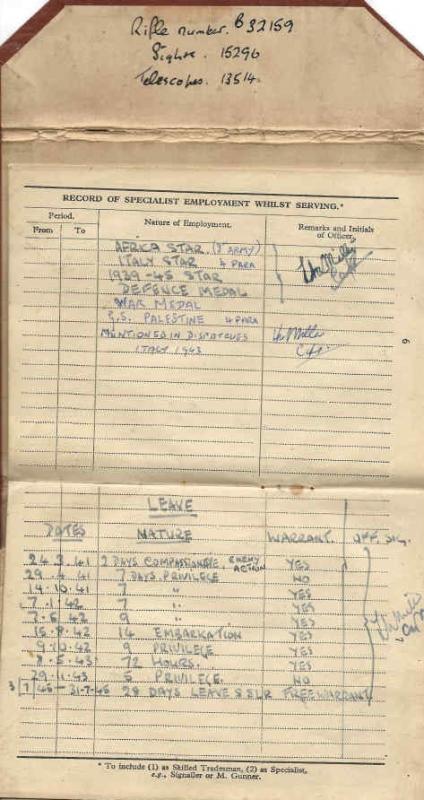 Rifle number. B32159
Sights. 15296
Telescopes. 13514.
RECORD OF SPECIALIST EMPLOYMENT WHILST SERVING.*
Period. Nature of Employment. Remarks and Initials of Officer.
From To
AFRICA STAR (1st ARMY)
ITALY STAR 4 PARA
1939-45 STAR
DEFENCE MEDAL
WAR MEDAL
G.S. PALESTINE 4 PARA
MENTIONED IN DISPATCHES
ITALY 1943
Capt.
6
LEAVE
DATES NATURE WARRANT. OFF. SIG.
24.3.41 2 DAYS COMPASSIONATE. ENEMY ACTION YES
29.4.41 7 DAYS PRIVILEGE NO
14.10.41 7 " YES
7.1.42 7 " YES
7.5.42 9 " YES
15.8.42 14 EMBARKATION YES
9.10.42 9 PRIVILEGE YES
8.5.43 72 HOURS. YES
29.11.43 5 PRIVILEGE. NO
3/7/45-31-7-45 28 DAYS LEAVE S SLR FREE WARRANT
7
* To include (1) as Skilled Tradesman, (2) as Specialist,
e.g., Signaller or M. Gunner.